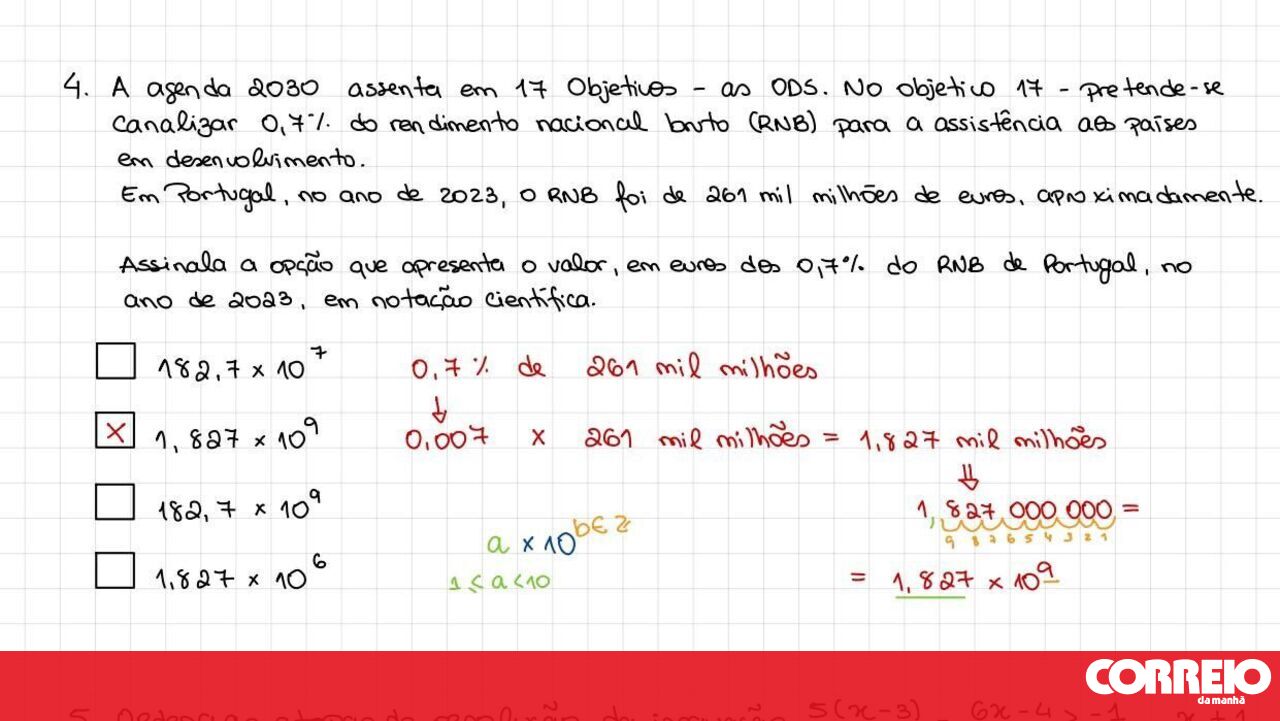 4. A agenda 2030 assenta em 17 Objetivos - as ODS. No objetivo 17 - pretende-se
canalizar 0,7% do rendimento nacional bruto (RNB) para a assistência aos países
em desenvolvimento.
Em Portugal, no ano de 2023, o RNB foi de 261 mil milhões de euros, aproximadamente.
Assinala a opção que apresenta o valor, em euros dos 0,7% do RNB de Portugal, no
ano de 2023, em notação científica.
182,7 × 10⁷ 0,7% de 261 mil milhões
↓
× 1,827 × 10⁹ 0,007 × 261 mil milhões = 1,827 mil milhões
⇓
182,7 × 10⁹ 1,827 000 000 =
9 8 7 6 5 4 3 2 1
a × 10^b∈ℤ
1,827 × 10⁶ 1 ≤ a < 10 = 1,827 × 10⁹
CORREIO
da manhã
5(x-3) 6x-4 > -1